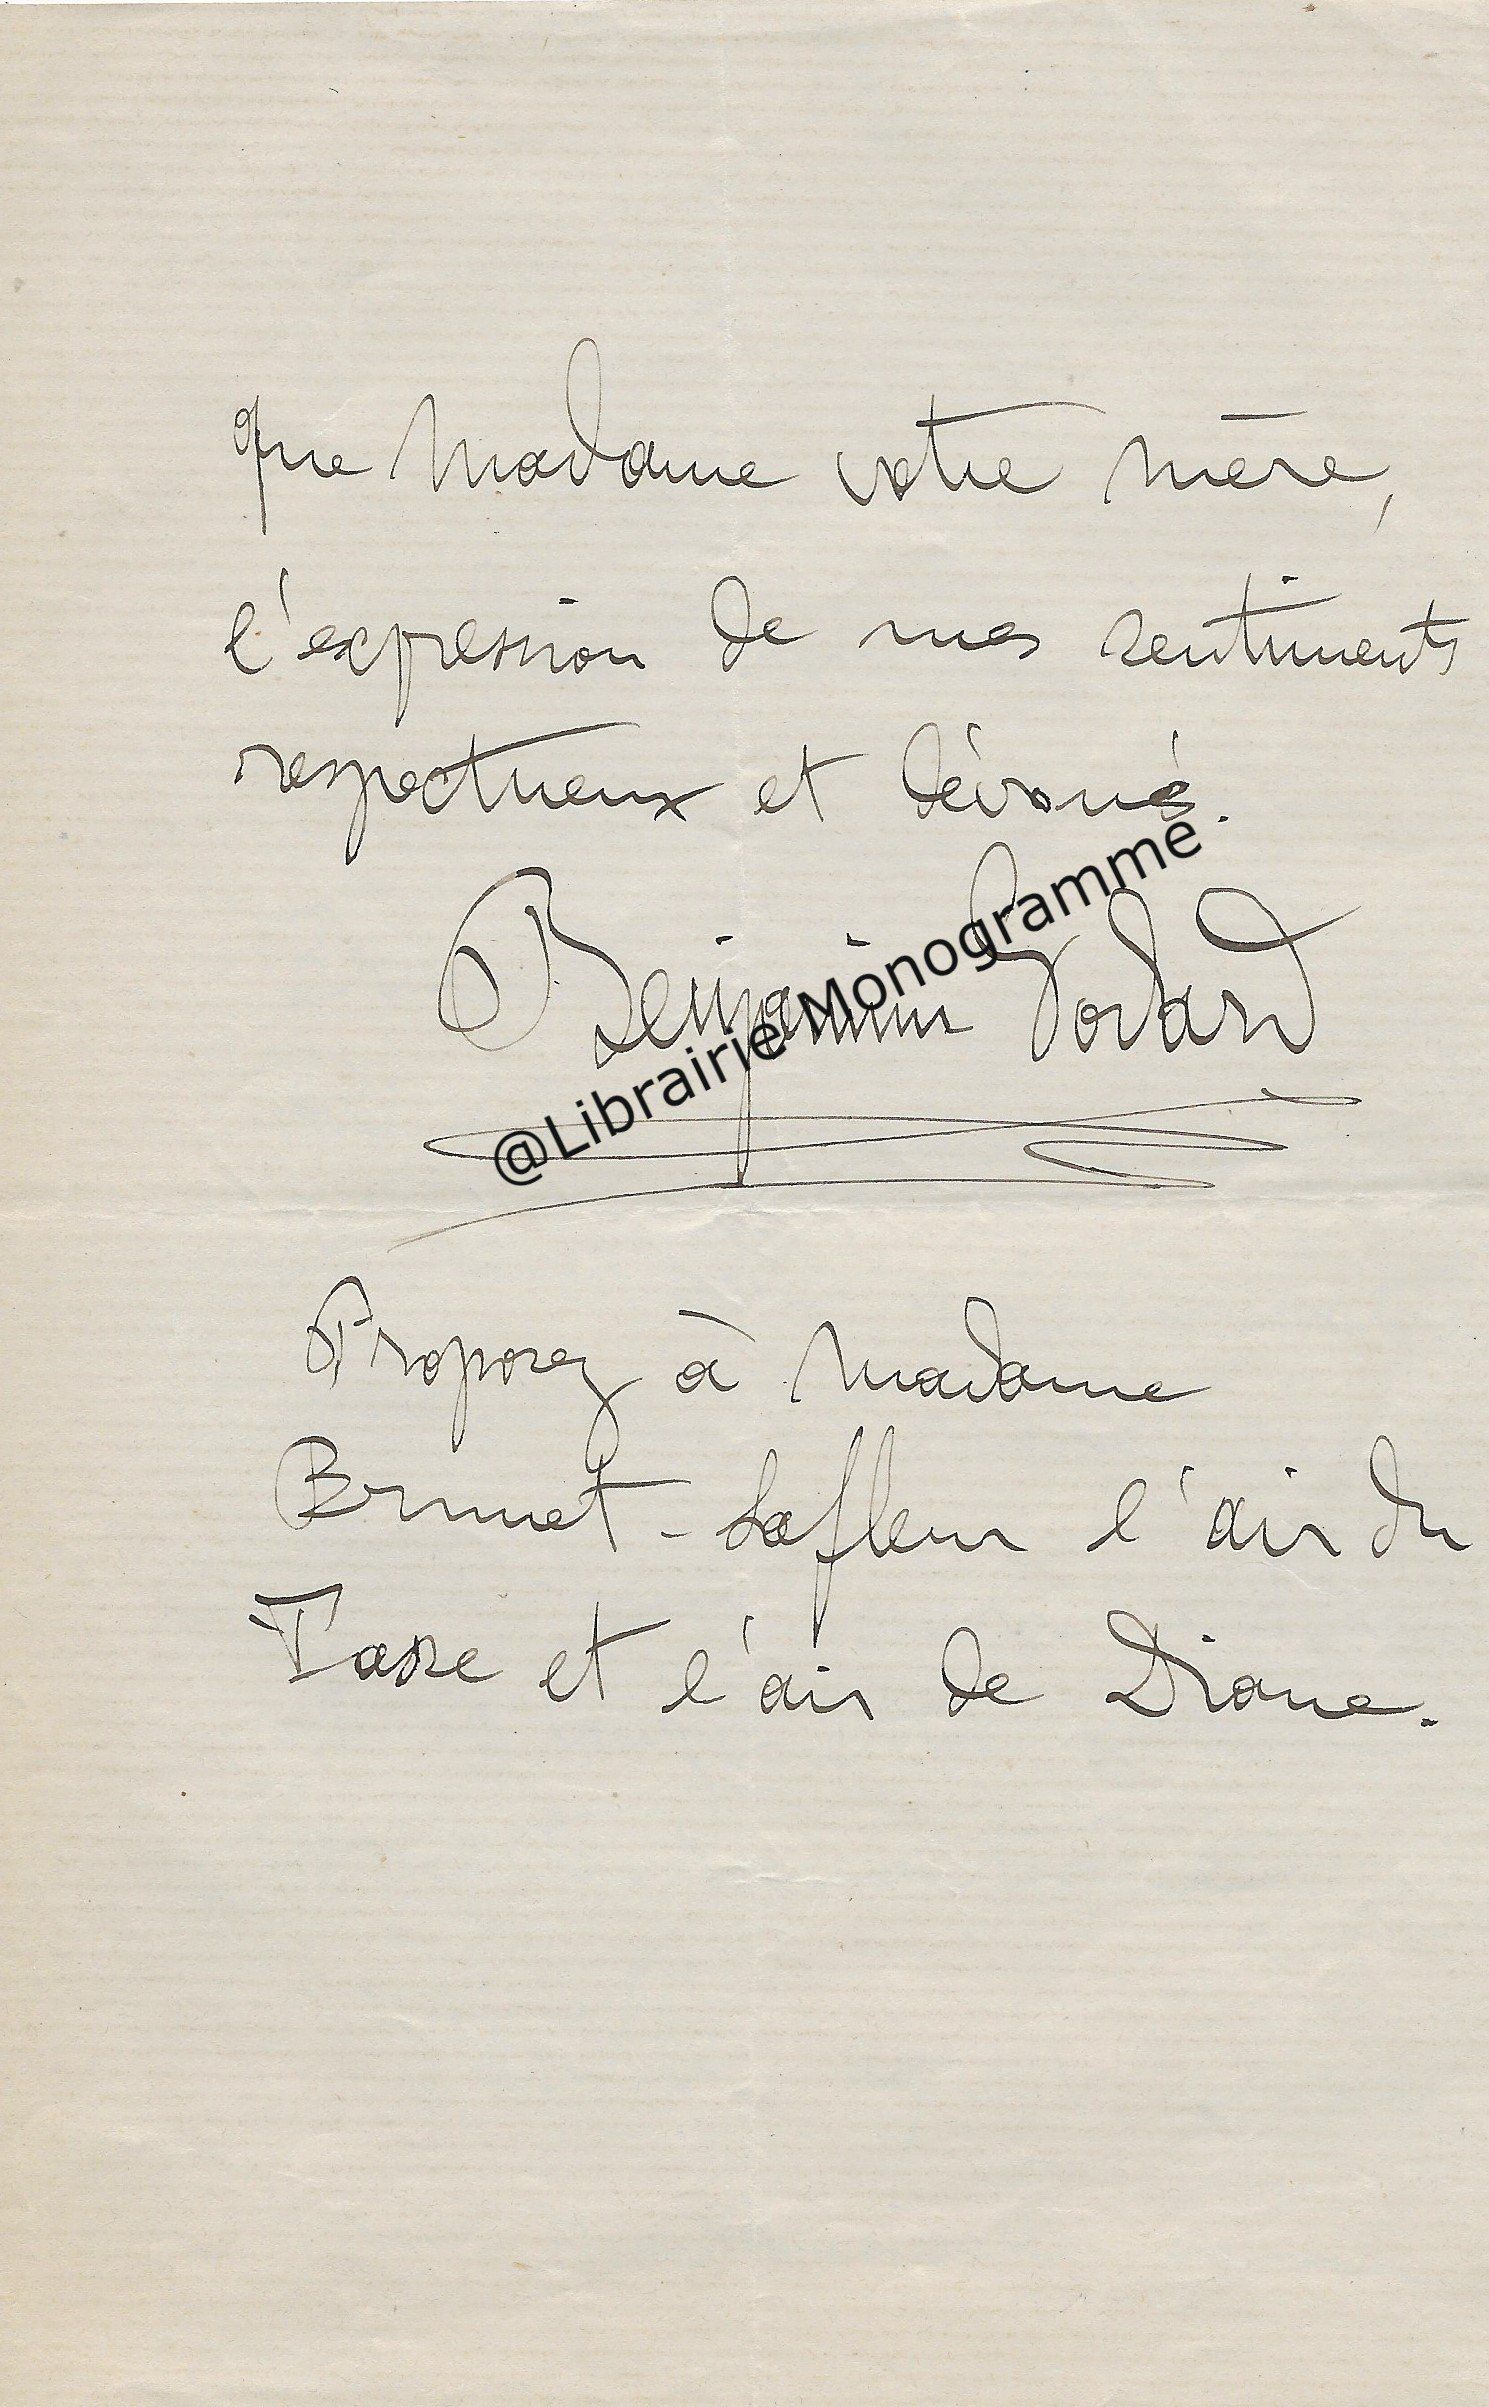 que Madame votre mère,
l'expression de mes sentiments
respectueux et dévoués.
Benjamin Godard
@Librairie Monogramme
Proposez à Madame
Brunet-Lafleur l'air du
Tasse et l'air de Diane.